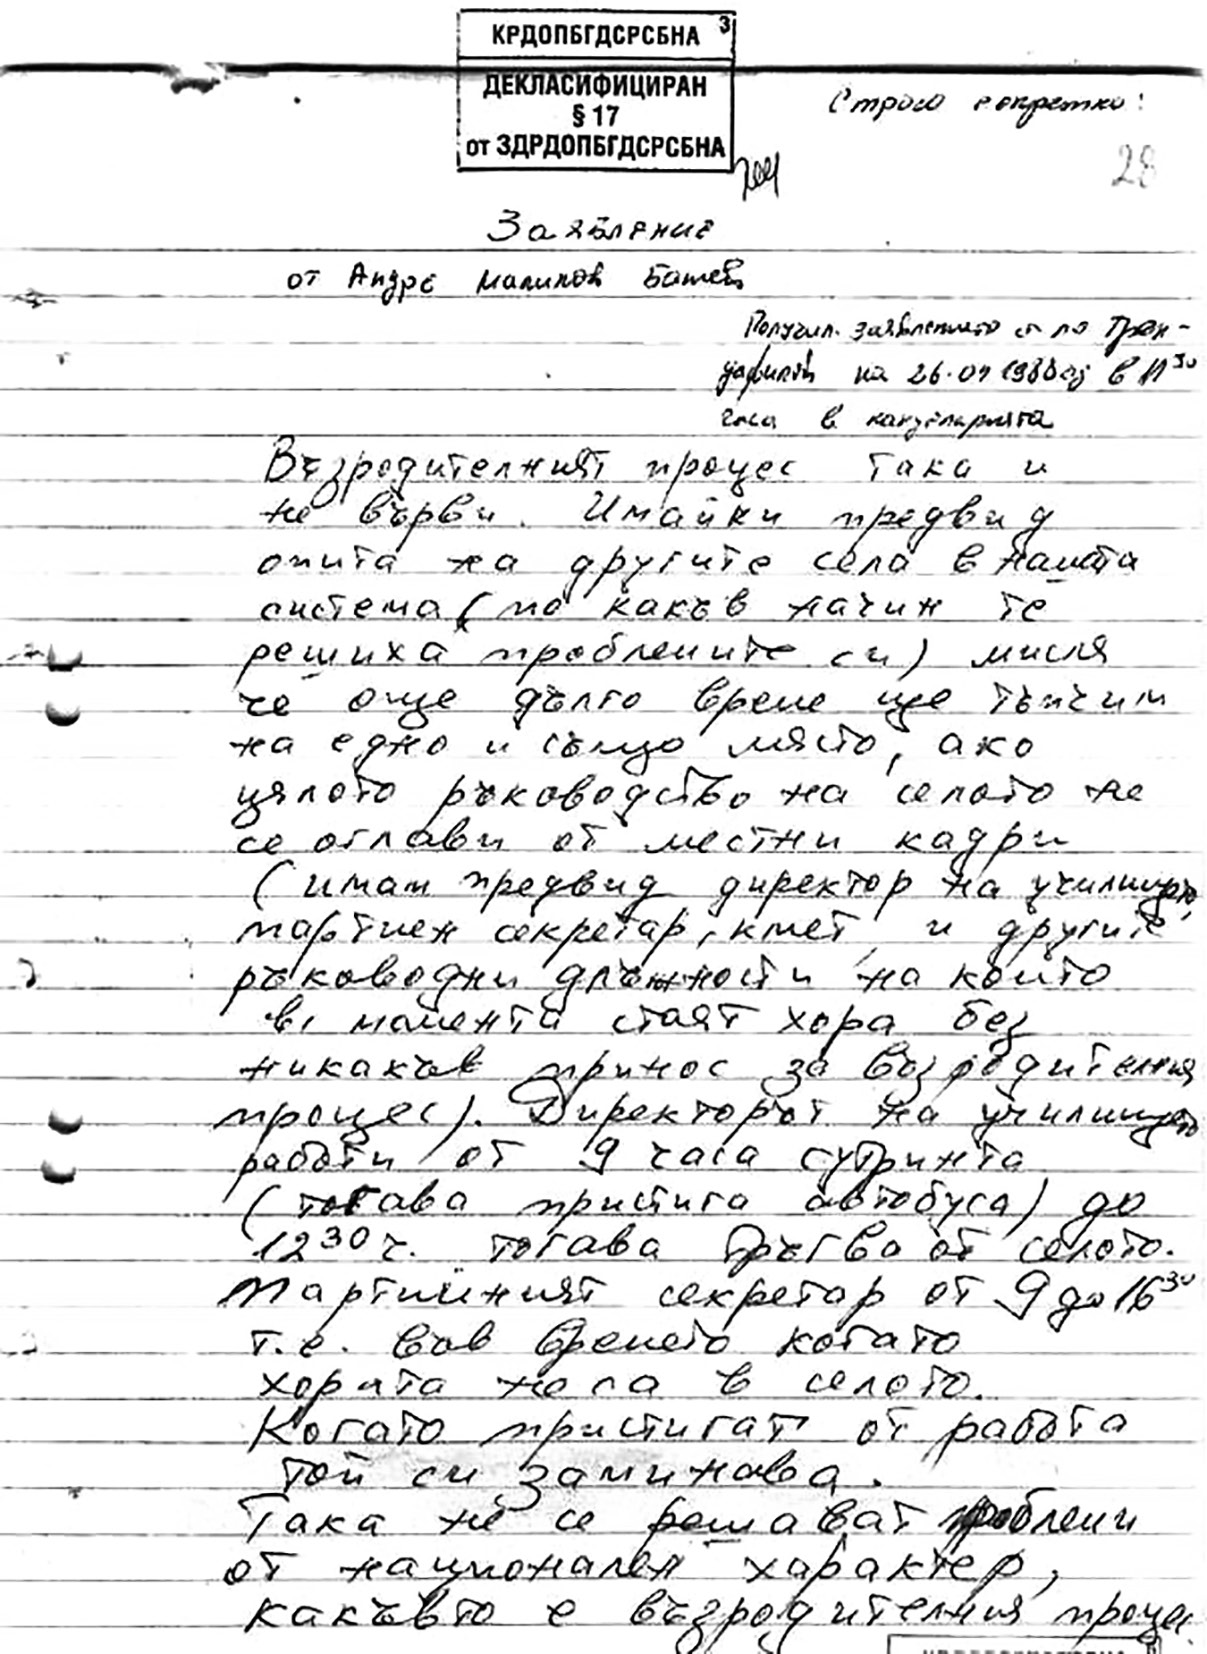 КРДОПБГДСРСБНА 3
ДЕКЛАСИФИЦИРАН
§ 17
от ЗДРДОПБГДСРСБНА
Строго секретно!
28
Заявление
от Андре Малинов Башев
Получил заявлението
на 26.01 в 11 30
часа в канцеларията
Възродителният процес така и
не върви. Имайки предвид
опита на другите села в нашата
система (по какъв начин те
решиха проблемите си) мисля
че още дълго време ще тъпчим
на едно и също място, ако
цялото ръководство на селото не
се оглави от местни кадри
(имам предвид директор на училището,
партиен секретар, кмет и другите
ръководни длъжности на които
в момента стоят хора без
никакъв принос за възродителния
процес). Директорът на училището
работи от 9 часа сутринта
(тогава пристига автобуса) до
12 30 ч. тогава тръгва от селото.
Партийният секретар от 9 до 16 30
т.е. във времето когато
хората не са в селото.
Когато пристигат от работа
той си заминава.
Така не се решават проблеми
от национален характер,
какъвто е възродителния процес